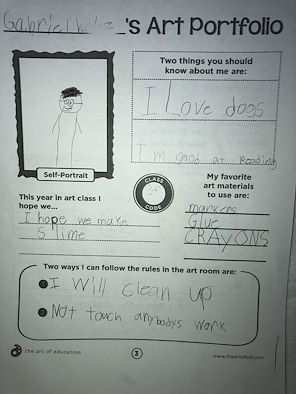 Gabriel 's Art Portfolio
Two things you should
know about me are:
I Love dogs
I'm good at Reading
Self-Portrait
CLASS
CODE
This year in art class I
hope we...
I hope we make
Slime
My favorite
art materials
to use are:
markers
Glue
CRAYONS
Two ways I can follow the rules in the art room are:
I Will clean up
Not touch anybodys work
the art of education
3
www.theartofed.com